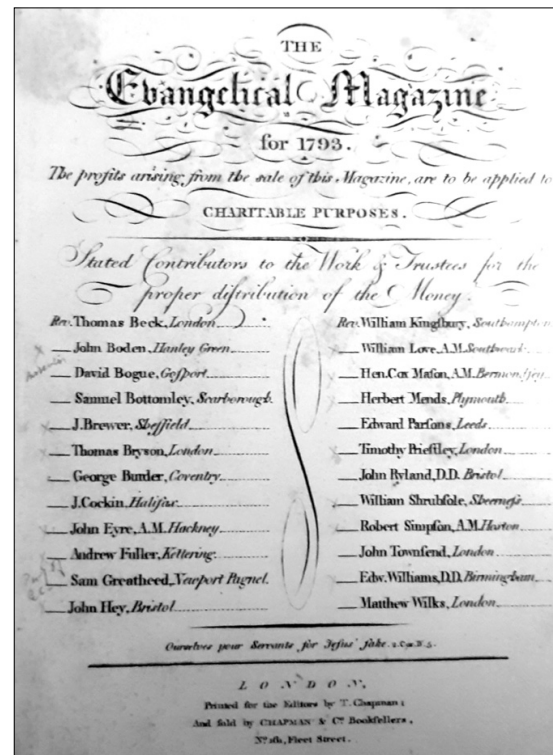 THE
Evangelical Magazine
for 1793.
The profits arising from the sale of this Magazine, are to be applied to
CHARITABLE PURPOSES.
Stated Contributors to the Work & Trustees for the
proper distribution of the Money.
Rev. Thomas Beck, London
John Boden, Hanley Green
David Bogue, Gosport
Samuel Bottomley, Scarborough
J. Brewer, Sheffield
Thomas Bryson, London
George Burder, Coventry
J. Cockin, Halifax
John Eyre, A.M. Hackney
Andrew Fuller, Kettering
Sam Greatheed, Newport Pagnel
John Hey, Bristol
Rev. William Kingsbury, Southampton
William Love, A.M. Southwark
Hen. Cox Mason, A.M. Bermondsey
Herbert Mends, Plymouth
Edward Parsons, Leeds
Timothy Priestley, London
John Ryland, D.D. Bristol
William Shrubsole, Sheerness
Robert Simpson, A.M. Hoxton
John Townsend, London
Edw. Williams, D.D. Birmingham
Matthew Wilks, London
Ourselves your Servants for Jesus' sake. 2. Cor. IV. 5.
LONDON,
Printed for the Editors by T. Chapman;
And sold by CHAPMAN & Co. Booksellers,
No. Fleet Street.